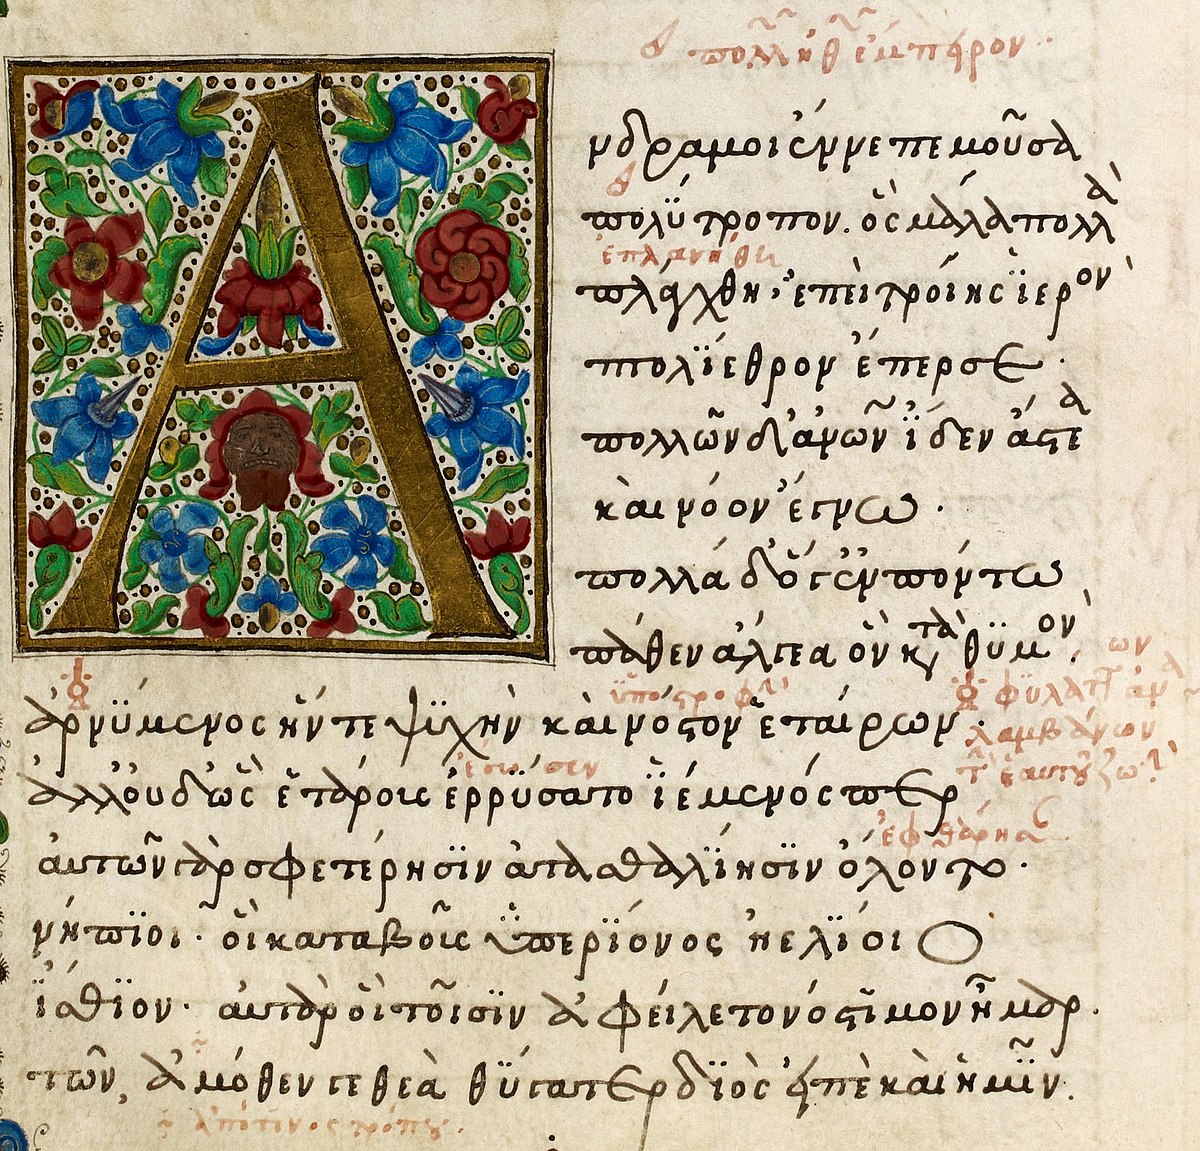 πολλ ἔμπειρον
Α
νδρα μοι ἔννεπε μοῦσα
πολύτροπον. ὃς μάλα πολλὰ
ἐπλανήθη
πλάγχθη, ἐπεὶ τροίης ϊερὸν
πτολϊεθρον ἔπερσε.
πολλῶν δ' ἀνθρώπων ἴδεν ἄστεα
καὶ νόον ἔγνω.
πολλὰ δ' ὅγ' ἐν πόντω
πάθεν ἄλγεα ὃν κατὰ θϋμὸν.
ὑποστροφὴν
ἀρνύμενος ἥν τε ψϋχὴν καὶ νόστον ἑταίρων.
λαμβάνων
ἔσωσεν
ἀλλ' οὐδ' ὣς ἑτάροις ἐρρύσατο ϊέμενός περ
ἐφθάρησαν
ἀυτῶν γὰρ σφετέρησϊν ἀτασθαλίησϊν ὄλοντο.
νήπϊοι. οἳ κατὰ βοῦς ὑπερϊόνος ἠελϊοιο
ἤσθϊον. ἀυτὰρ ὃ τοῖσϊν ἀφείλετο νόστϊμον ἦμαρ.
τῶν, ἁμόθεν γε θεὰ θύγατερ δϊὸς εἰπὲ καὶ ἡμῖν.
ἀπό τινος τρόπου.